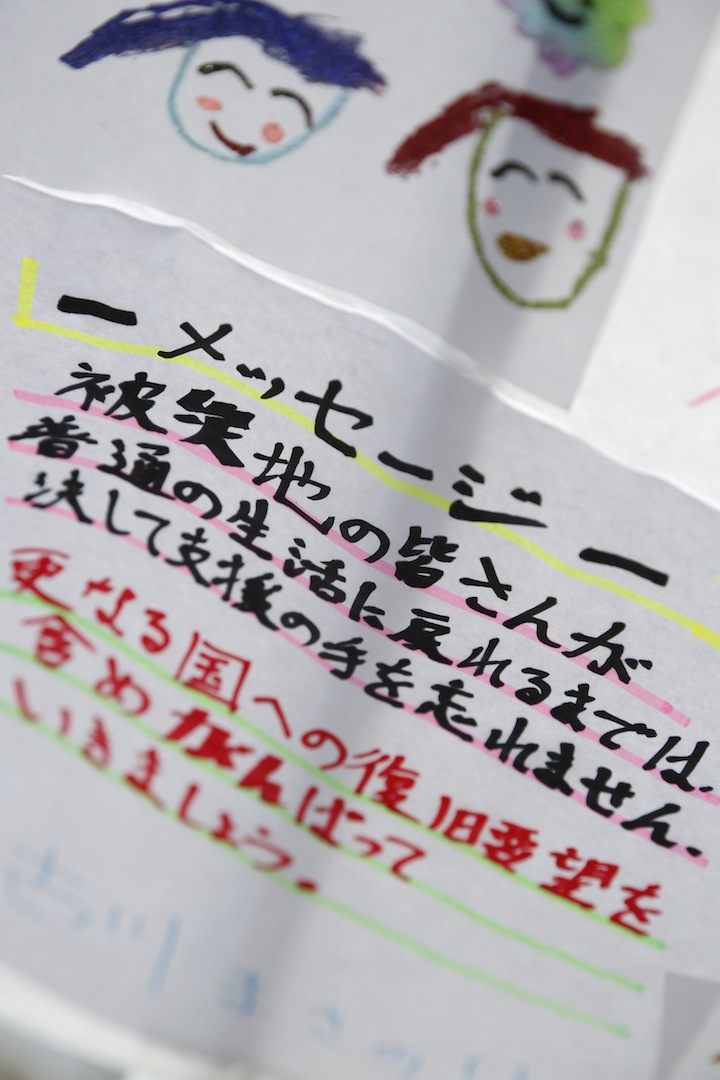 ーメッセージー
被災地の皆さんが
普通の生活に戻れるまでは、
決して支援の手を忘れません。
更なる国への復旧要望を
含めがんばって
いきましょう。
古川